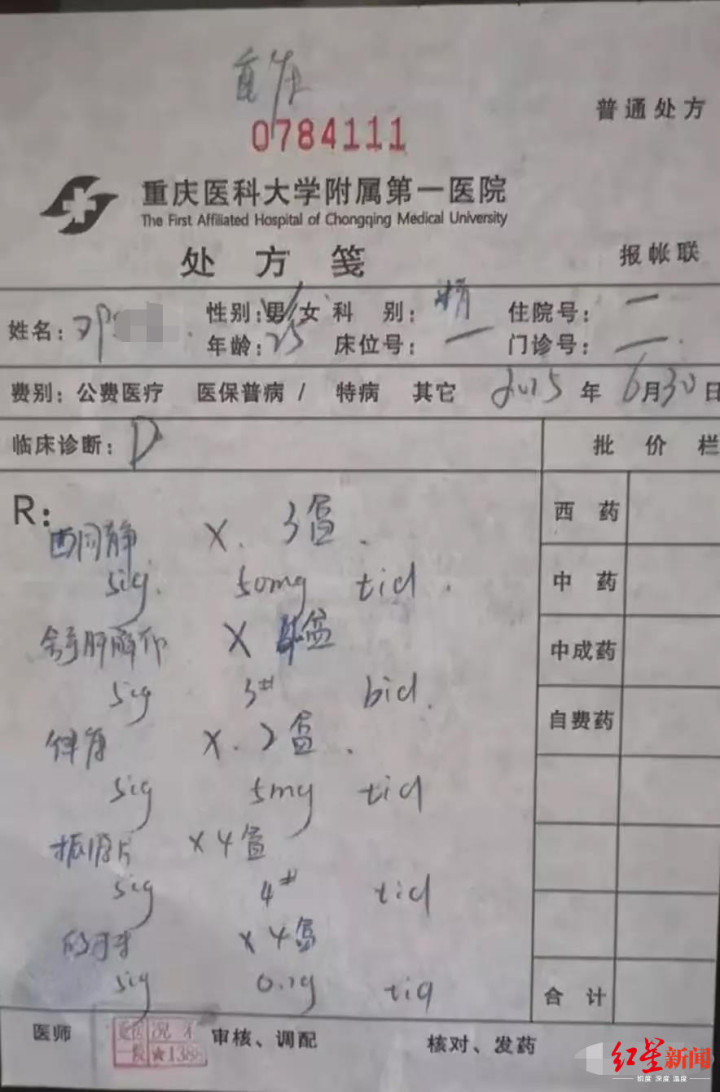 普通处方
0784111
重庆医科大学附属第一医院
The First Affiliated Hospital of Chongqing Medical University
处方笺
报帐联
姓名: 邓 性别: 男/女 科别: 住院号: 一
年龄: 25 床位号: 一 门诊号: 一
费别: 公费医疗 医保普病 / 特病 其它 2015 年 6月30日
临床诊断: D 批价栏
R:
西同静 X. 3盒.
sig. 50mg tid.
舒肝解郁 X 盒
sig 3# bid.
X. 2盒.
sig 5mg tid
片 X4盒
sig 4# tid
X4盒
sig tid
西药
中药
中成药
自费药
合计
医师 审核、调配 核对、发药
红星新闻
积度 深度 温度